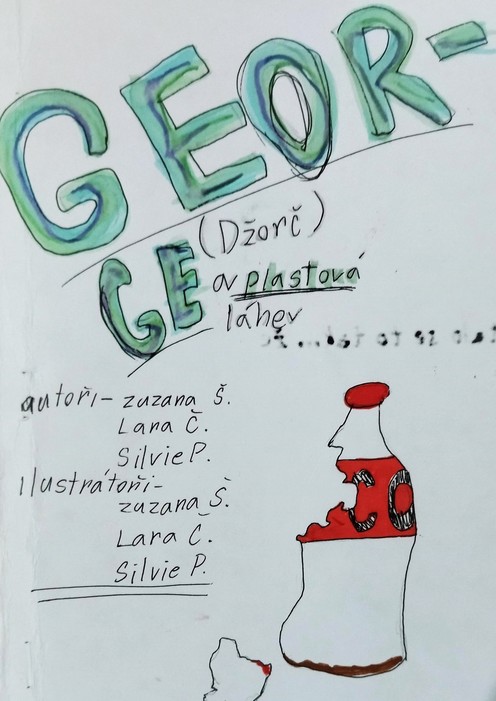 GEOR-
GE
(Džorč)
a plastová
láhev
autoři- zuzana Š.
Lara Č.
Silvie P.
Ilustrátoři-
zuzana Š.
Lara Č.
Silvie P.
CO